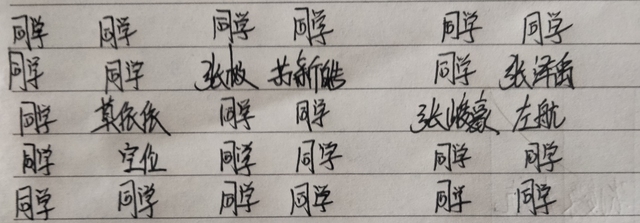 同学 同学 同学 同学 同学 同学
同学 同学 张极 苏新皓 同学 张泽禹
同学 草依依 同学 同学 张峻豪 左航
同学 空位 同学 同学 同学 同学
同学 同学 同学 同学 同学 同学